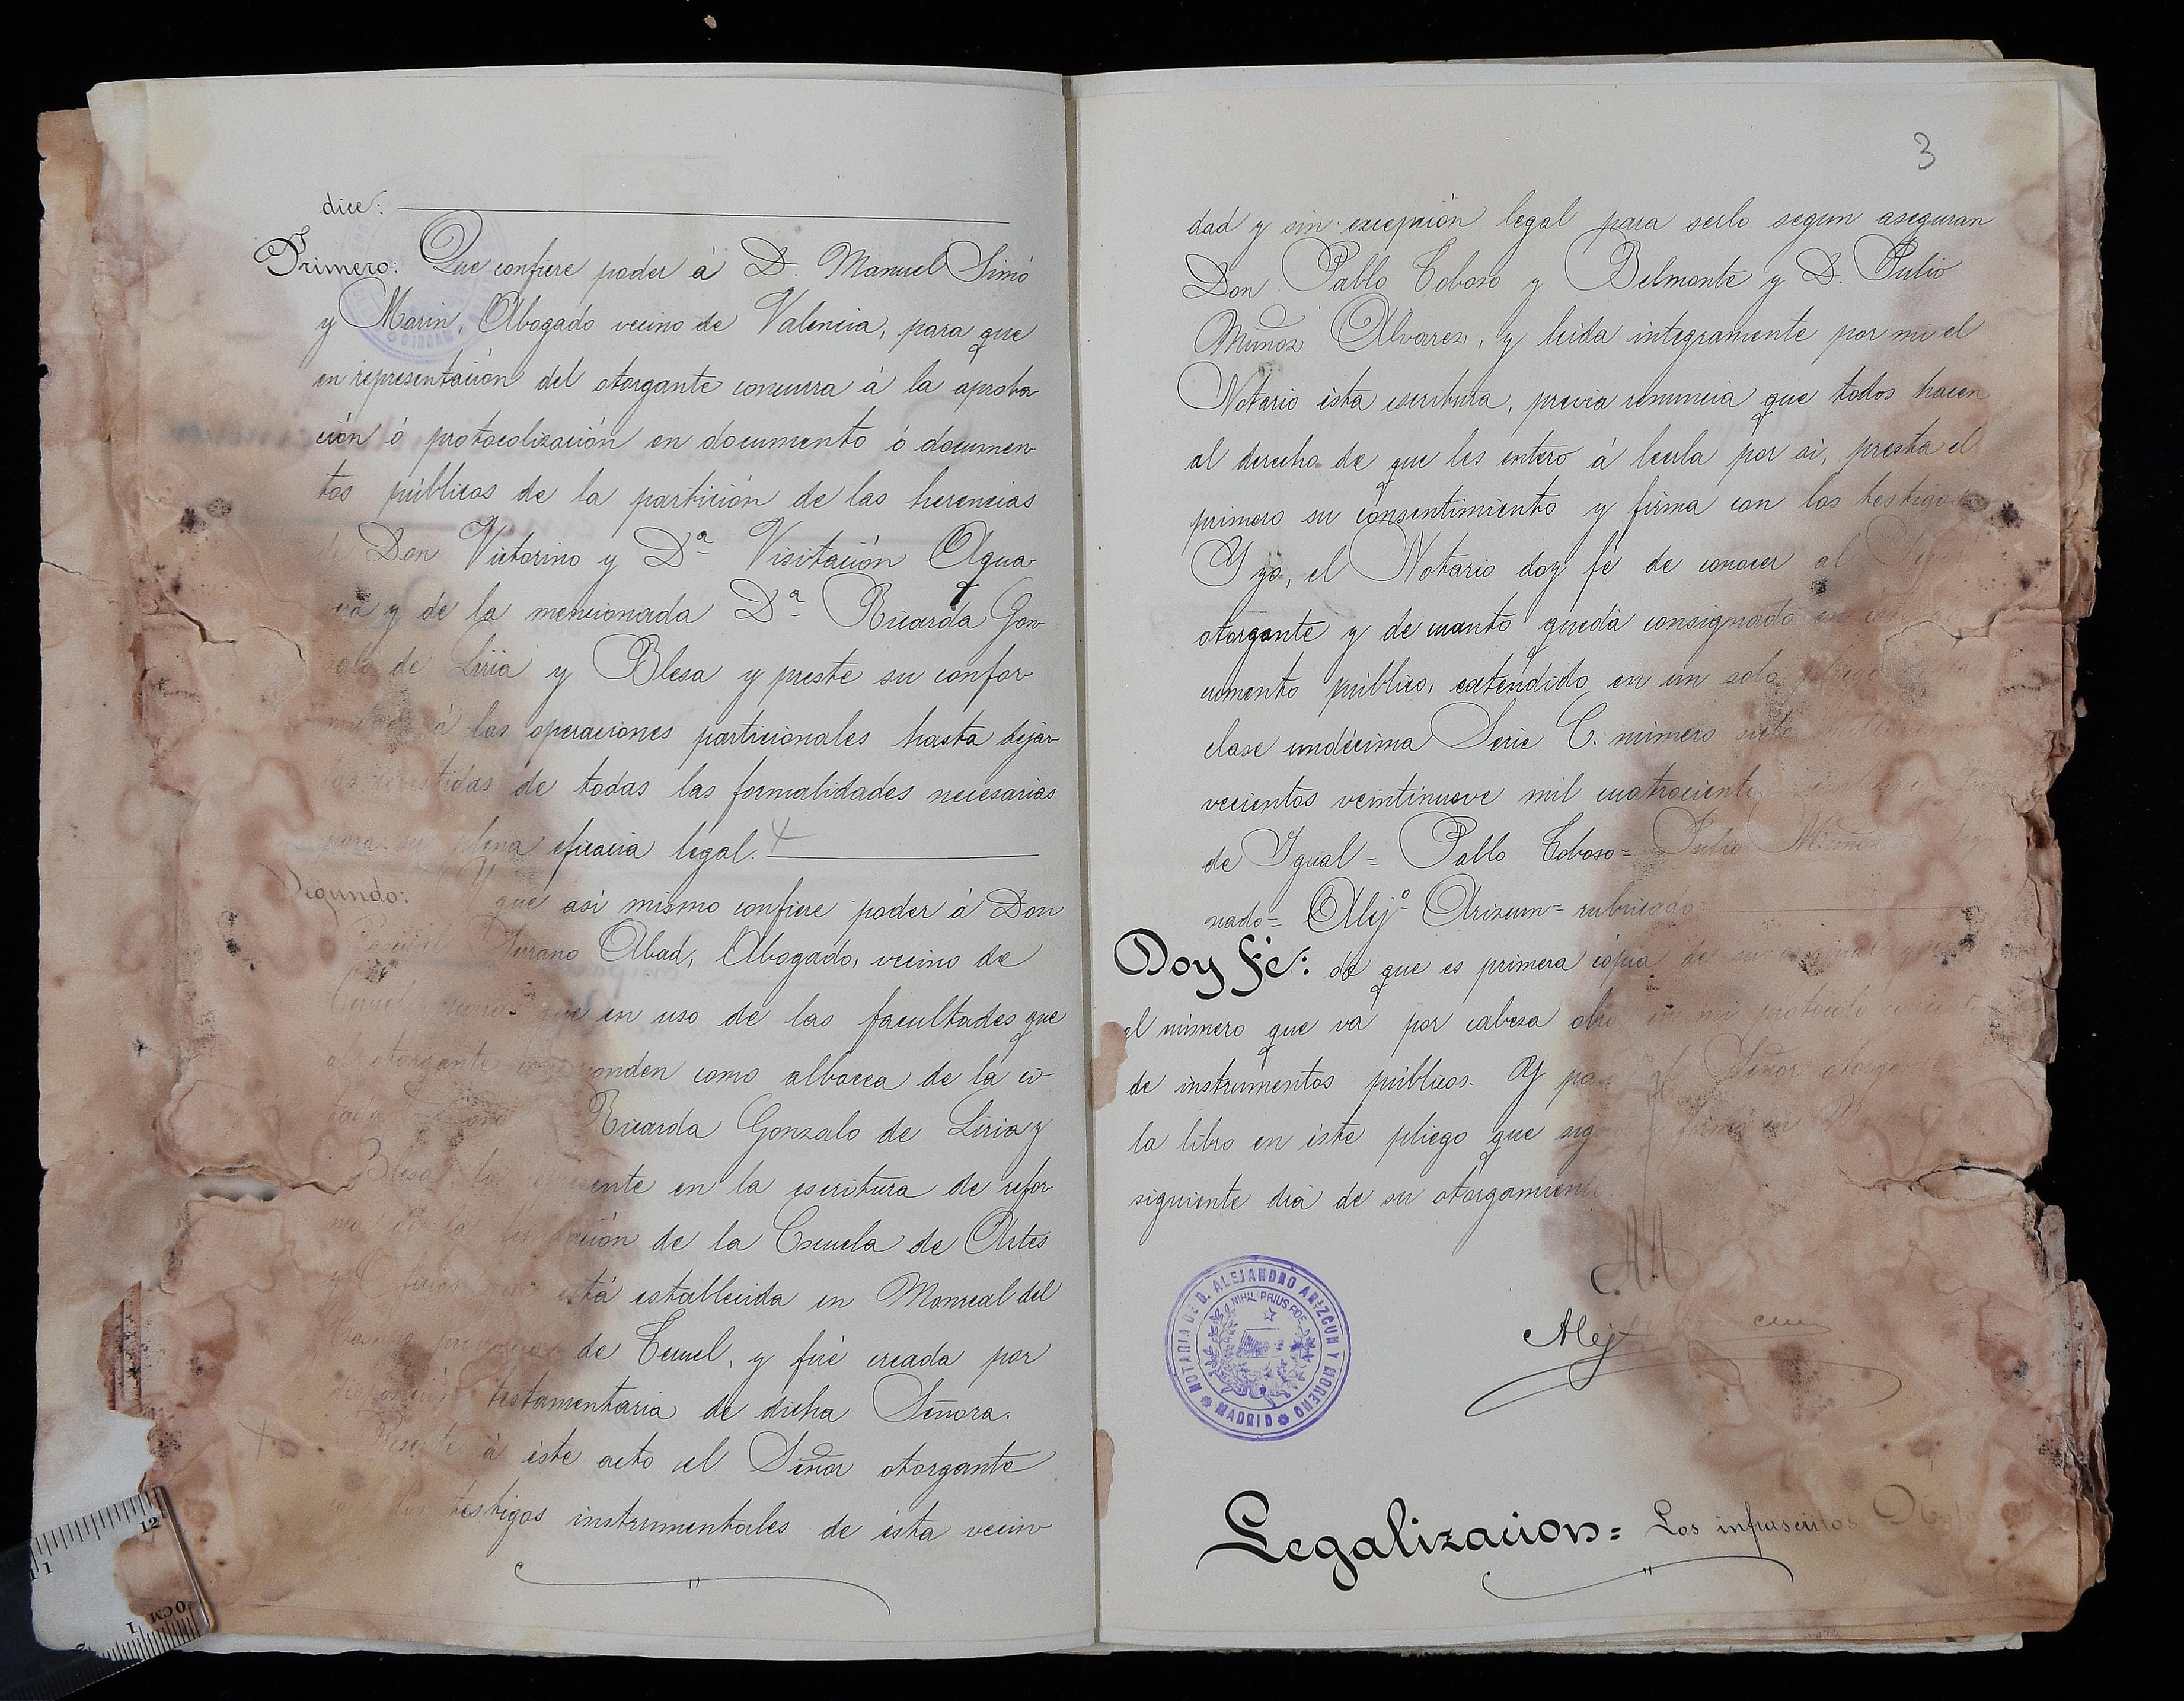 dice:
Primero: Que confiere poder á D. Manuel Simó
y Marin, Abogado vecino de Valencia, para que
en representación del otorgante concurra á la aproba
ción ó protocolización en documento ó documen-
tos públicos de la partición de las herencias
de Don Victorino y Dª Visitación Agua-
y de la mencionada Dª Ricarda Gon
zalo de Liria y Blesa y preste su confor-
á las operaciones particionales hasta dejar-
las revestidas de todas las formalidades necesarias
para su plena eficacia legal.
Segundo: Y que asi mismo confiere poder á Don
Pascual Serrano Abad, Abogado, vecino de
Teruel para que en uso de las facultades que
al otorgante corresponden como albacea de la ci-
tada Doña Ricarda Gonzalo de Liria y
Blesa, le represente en la escritura de refor-
ma de la fundación de la Escuela de Artes
y Oficios que está establecida en Monreal del
Campo provincia de Teruel, y fué creada por
disposición testamentaria de dicha Señora.
Presente á éste acto el Señor otorgante
con los testigos instrumentales de ésta vecin-
3
dad y sin excepción legal para serlo segun aseguran
Don Pablo Toboso y Belmonte y D. Julio
Muñoz Alvarez, y leida integramente por mi el
Notario ésta escritura, previa renuncia que todos hacen
al derecho de que les entero á leerla por si, presta el
primero su consentimiento y firma con los testigos.
Y yo, el Notario doy fé de conocer al Señor
otorgante y de cuanto queda consignado en éste
cumento público, extendido en un solo pliego
clase undécima Serie C. número siete
vecientos veintinueve mil cuatrocientos
de Igual= Pablo Toboso= Julio Muñoz
nado= Alejº Arizcun= rubricado
Doy fé: de que es primera cópia de su original que
el número que va por cabeza obra en mi protocolo corriente
de instrumentos públicos. Y para el Señor otorgante
la libro en éste pliego que signo y firmo en
siguiente dia de su otorgamiento
NOTARIA DE D. ALEJANDRO ARIZCUN Y MORENO
NIHIL PRIUS FIDE
MADRID
Alejº
Legalizacion= Los infrascritos
12
11
0CM
1
2